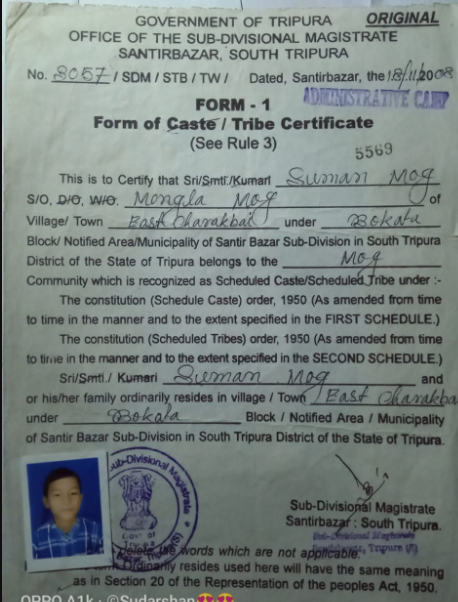 GOVERNMENT OF TRIPURA ORIGINAL
OFFICE OF THE SUB-DIVISIONAL MAGISTRATE
SANTIRBAZAR, SOUTH TRIPURA
No. 8057 / SDM / STB / TW / Dated, Santirbazar, the 18/11/2008
ADMINISTRATIVE CAMP
FORM - 1
Form of Caste / Tribe Certificate
(See Rule 3)
5569
This is to Certify that Sri/Smti./Kumari Suman Mog
S/O, D/O, W/O. Mongla Mog of
Village/ Town East Charakbai under Bokafa
Block/ Notified Area/Municipality of Santir Bazar Sub-Division in South Tripura
District of the State of Tripura belongs to the Mog
Community which is recognized as Scheduled Caste/Scheduled Tribe under :-
The constitution (Schedule Caste) order, 1950 (As amended from time
to time in the manner and to the extent specified in the FIRST SCHEDULE.)
The constitution (Scheduled Tribes) order, 1950 (As amended from time
to time in the manner and to the extent specified in the SECOND SCHEDULE.)
Sri/Smti./ Kumari Suman Mog and
or his/her family ordinarily resides in village / Town East Charakba
under Bokafa Block / Notified Area / Municipality
of Santir Bazar Sub-Division in South Tripura District of the State of Tripura.
Sub-Divisional Magistrate
Govt of
Tripura
Sub-Divisional Magistrate
Santirbazar : South Tripura.
Sub-Divisional Magistrate
Tripura (S)
Delete the words which are not applicable.
Ordinarily resides used here will have the same meaning
as in Section 20 of the Representation of the peoples Act, 1950.
OPPO A1k · ©Sudarshan😍😍